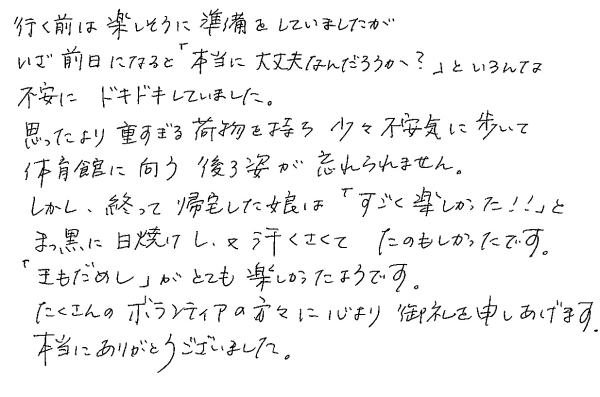 行く前は楽しそうに準備をしていましたが
いざ前日になると「本当に大丈夫なんだろうか?」といろんな
不安にドキドキしていました。
思ったより重すぎる荷物を持ち少々不安気に歩いて
体育館に向う後ろ姿が忘れられません。
しかし、終って帰宅した娘は「すごく楽しかった!!」と
まっ黒に日焼けし、又汗くさくてたのもしかったです。
「王もだめし」がとても楽しかったようです。
たくさんのボランティアの方々に心より御礼を申しあげます。
本当にありがとうございました。